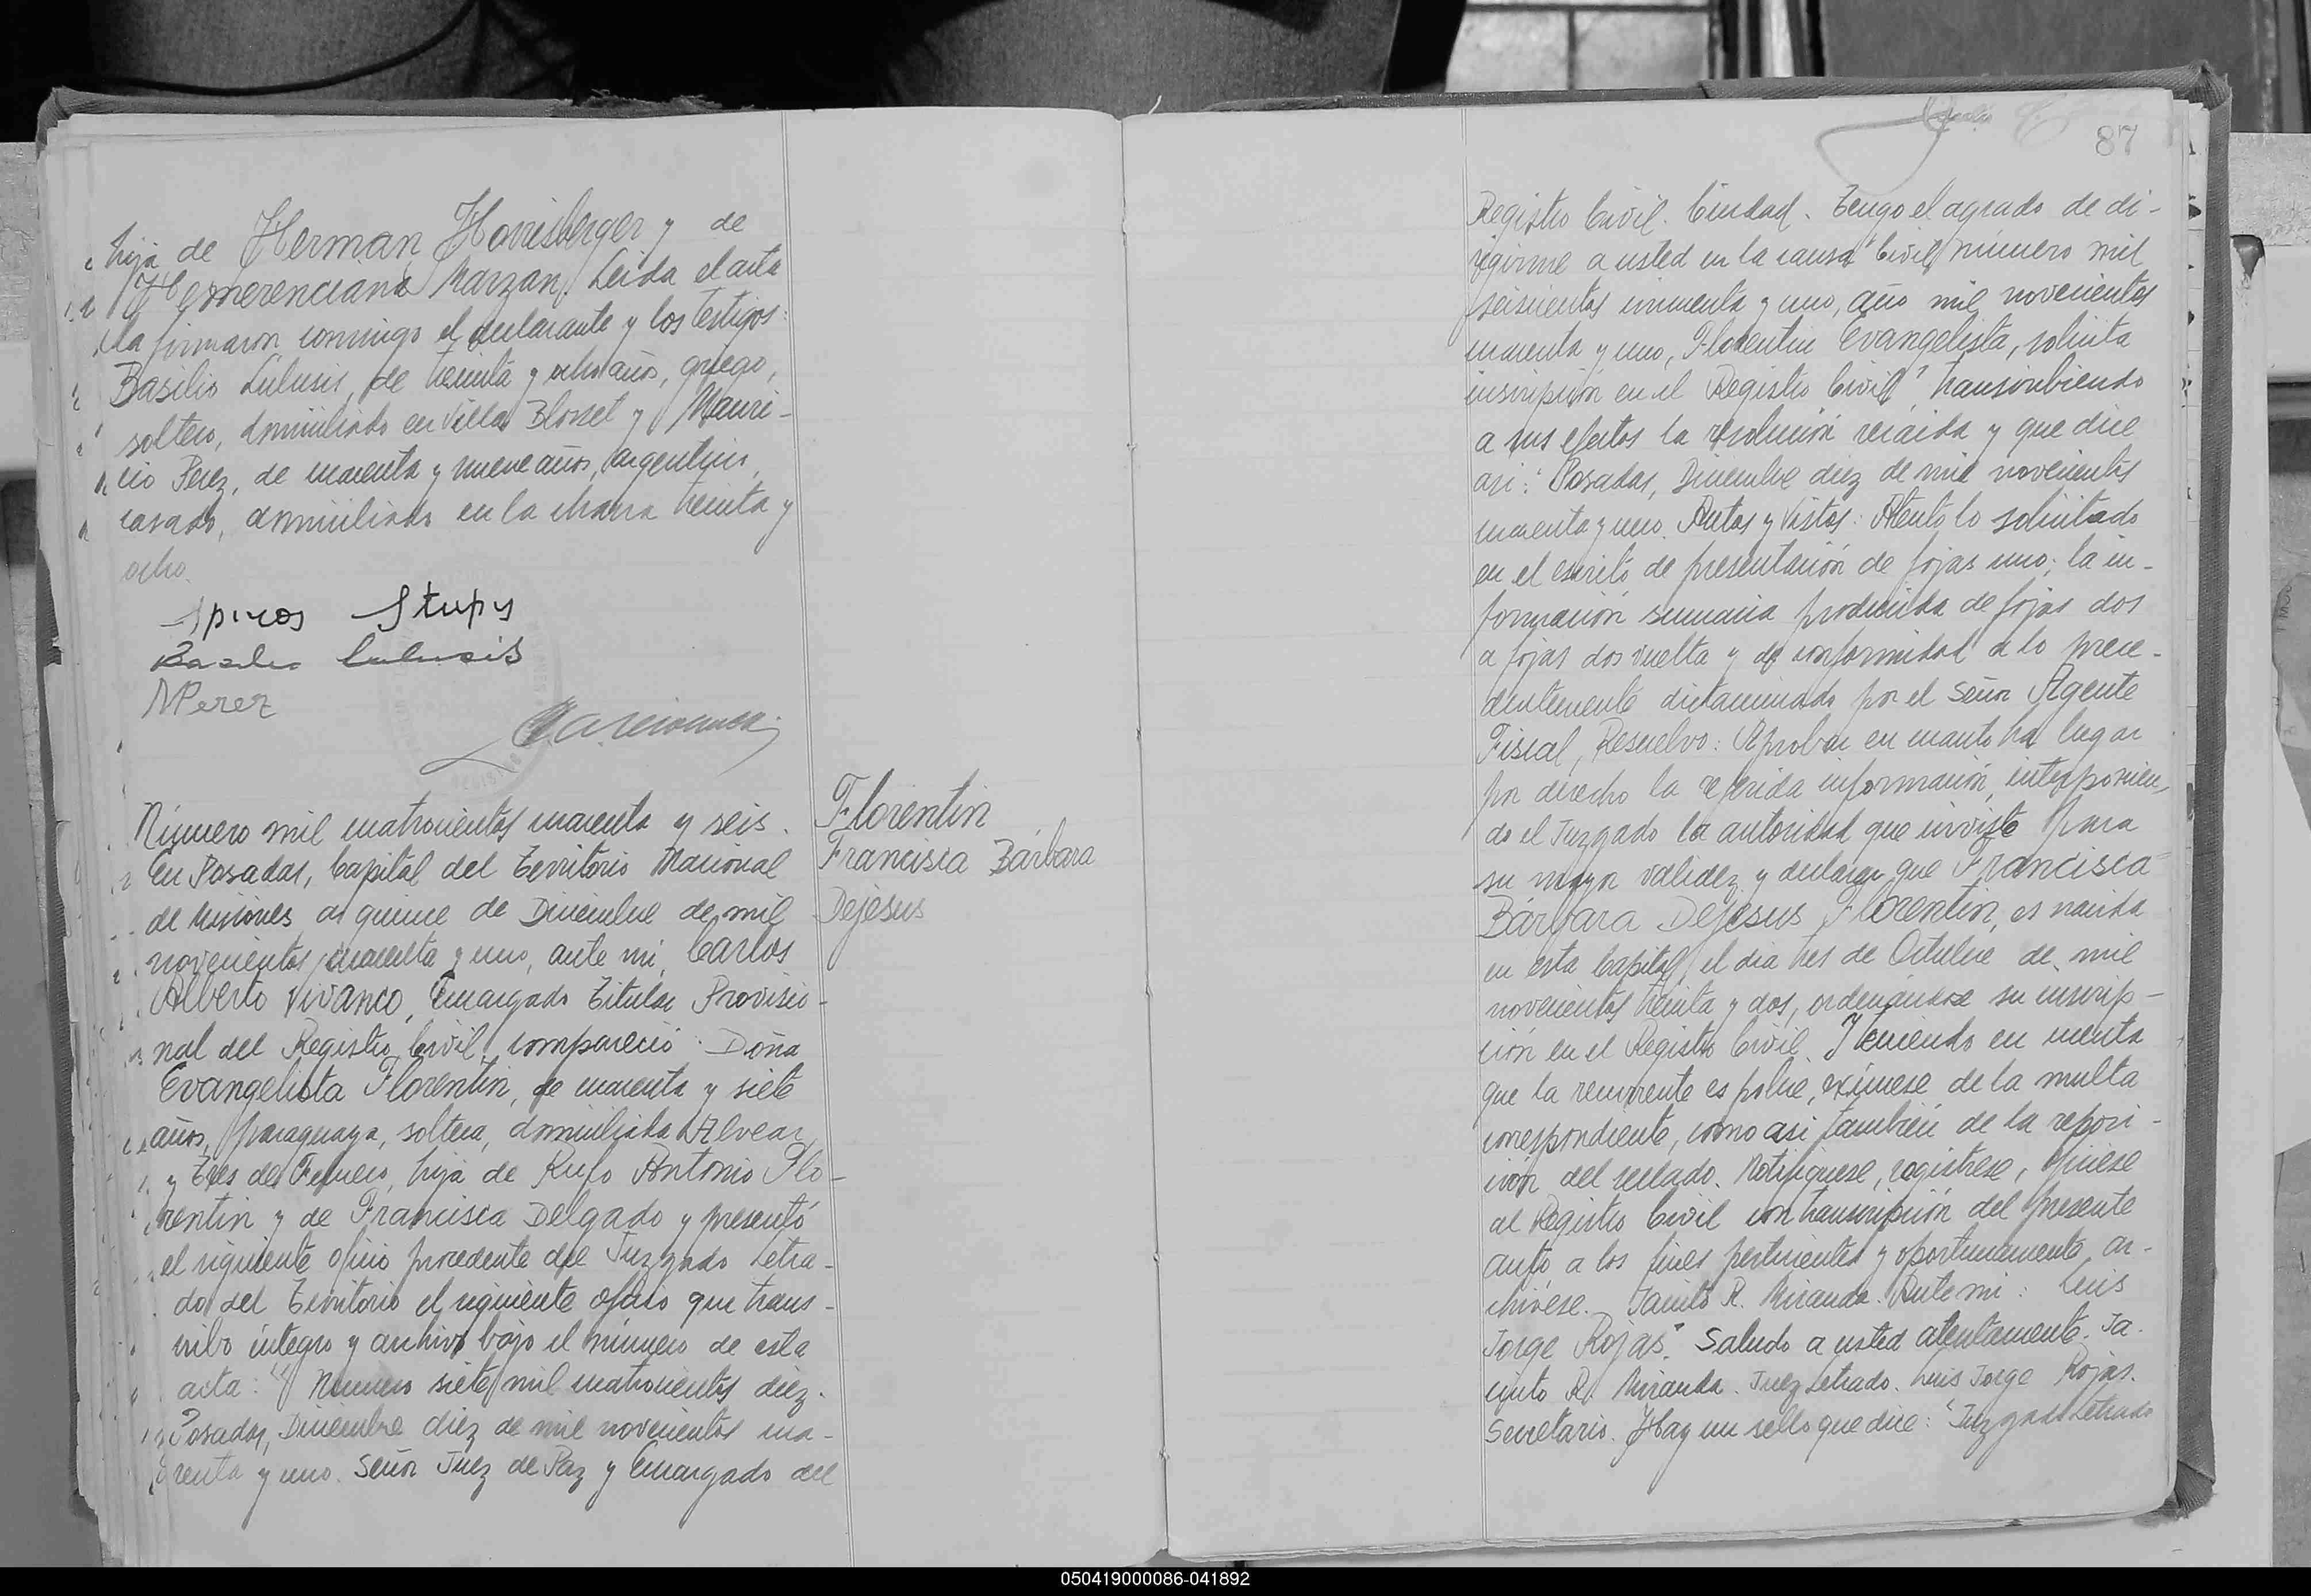 hija de Herman Horrisberger y de
Hemerenciana Marzan. Leida el acta
la firmaron conmigo el declarante y los testigos:
Basilio Lulusis, de treinta y ocho años, griego,
soltero, domiciliado en Villa Blosset y Mauri-
cio Perez, de cuarenta y nueve años, argentino,
casado, domiciliado en la chacra treinta y
ocho.
Spiros Stupys
Basilio Lulusis
MPerez
Número mil cuatrocientos cuarenta y seis.
En Posadas, Capital del Territorio Nacional
de Misiones, a quince de Diciembre de mil
novecientos cuarenta y uno, ante mi, Carlos
Alberto Vivanco, Encargado Titular Provisio-
nal del Registro Civil, compareció: Doña
Evangelista Florentin, de cuarenta y siete
años, paraguaya, soltera, domiciliada Alvear
y Tres de Febrero, hija de Rufo Antonio Flo-
rentin y de Francisca Delgado y presentó
el siguiente oficio procedente del Juzgado Letra-
do del Territorio el siguiente oficio que trans-
cribo íntegro y archivo bajo el número de esta
acta: "Número siete mil cuatrocientos diez.
Posadas, Diciembre diez de mil novecientos cua-
renta y uno. Señor Juez de Paz y Encargado del
Florentin
Francisca Bárbara
Dejesus
87
Registro Civil. Ciudad. Tengo el agrado de di-
rigirme a usted en la causa "Civil, número mil
seiscientos cincuenta y uno, año mil novecientos
cuarenta y uno, Florentin Evangelista, solicita
inscripción en el Registro Civil", transcribiendo
a sus efectos la resolución recaida y que dice
asi: "Posadas, Diciembre diez de mil novecientos
cuarenta y uno. Autos y Vistos: Atento lo solicitado
en el escrito de presentación de fojas uno; la in-
formación sumaria producida de fojas dos
a fojas dos vuelta y de conformidad a lo prece-
dentemente dictaminado por el Señor Agente
Fiscal, Resuelvo: Aprobar en cuanto ha lugar
por derecho la referida información, interponien-
do el Juzgado la autoridad que inviste para
su mayor validez y declarar que Francisca
Bárbara Dejesus Florentin, es nacida
en esta Capital el dia tres de Octubre de mil
novecientos treinta y dos, ordenándose su inscrip-
ción en el Registro Civil. Y teniendo en cuenta
que la recurrente es pobre, exímese de la multa
correspondiente, como asi tambien de la reposi-
ción del sellado. Notifíquese, regístrese, ofíciese
al Registro Civil con transcripción del presente
auto a los fines pertinentes y oportunamente, ar-
chívese. Jacinto R. Miranda. Ante mi: Luis
Jorge Rojas". Saludo a usted atentamente. Ja-
cinto R. Miranda. Juez Letrado. Luis Jorge Rojas.
Secretario. Hay un sello que dice: "Juzgado Letrado
050419000086-041892